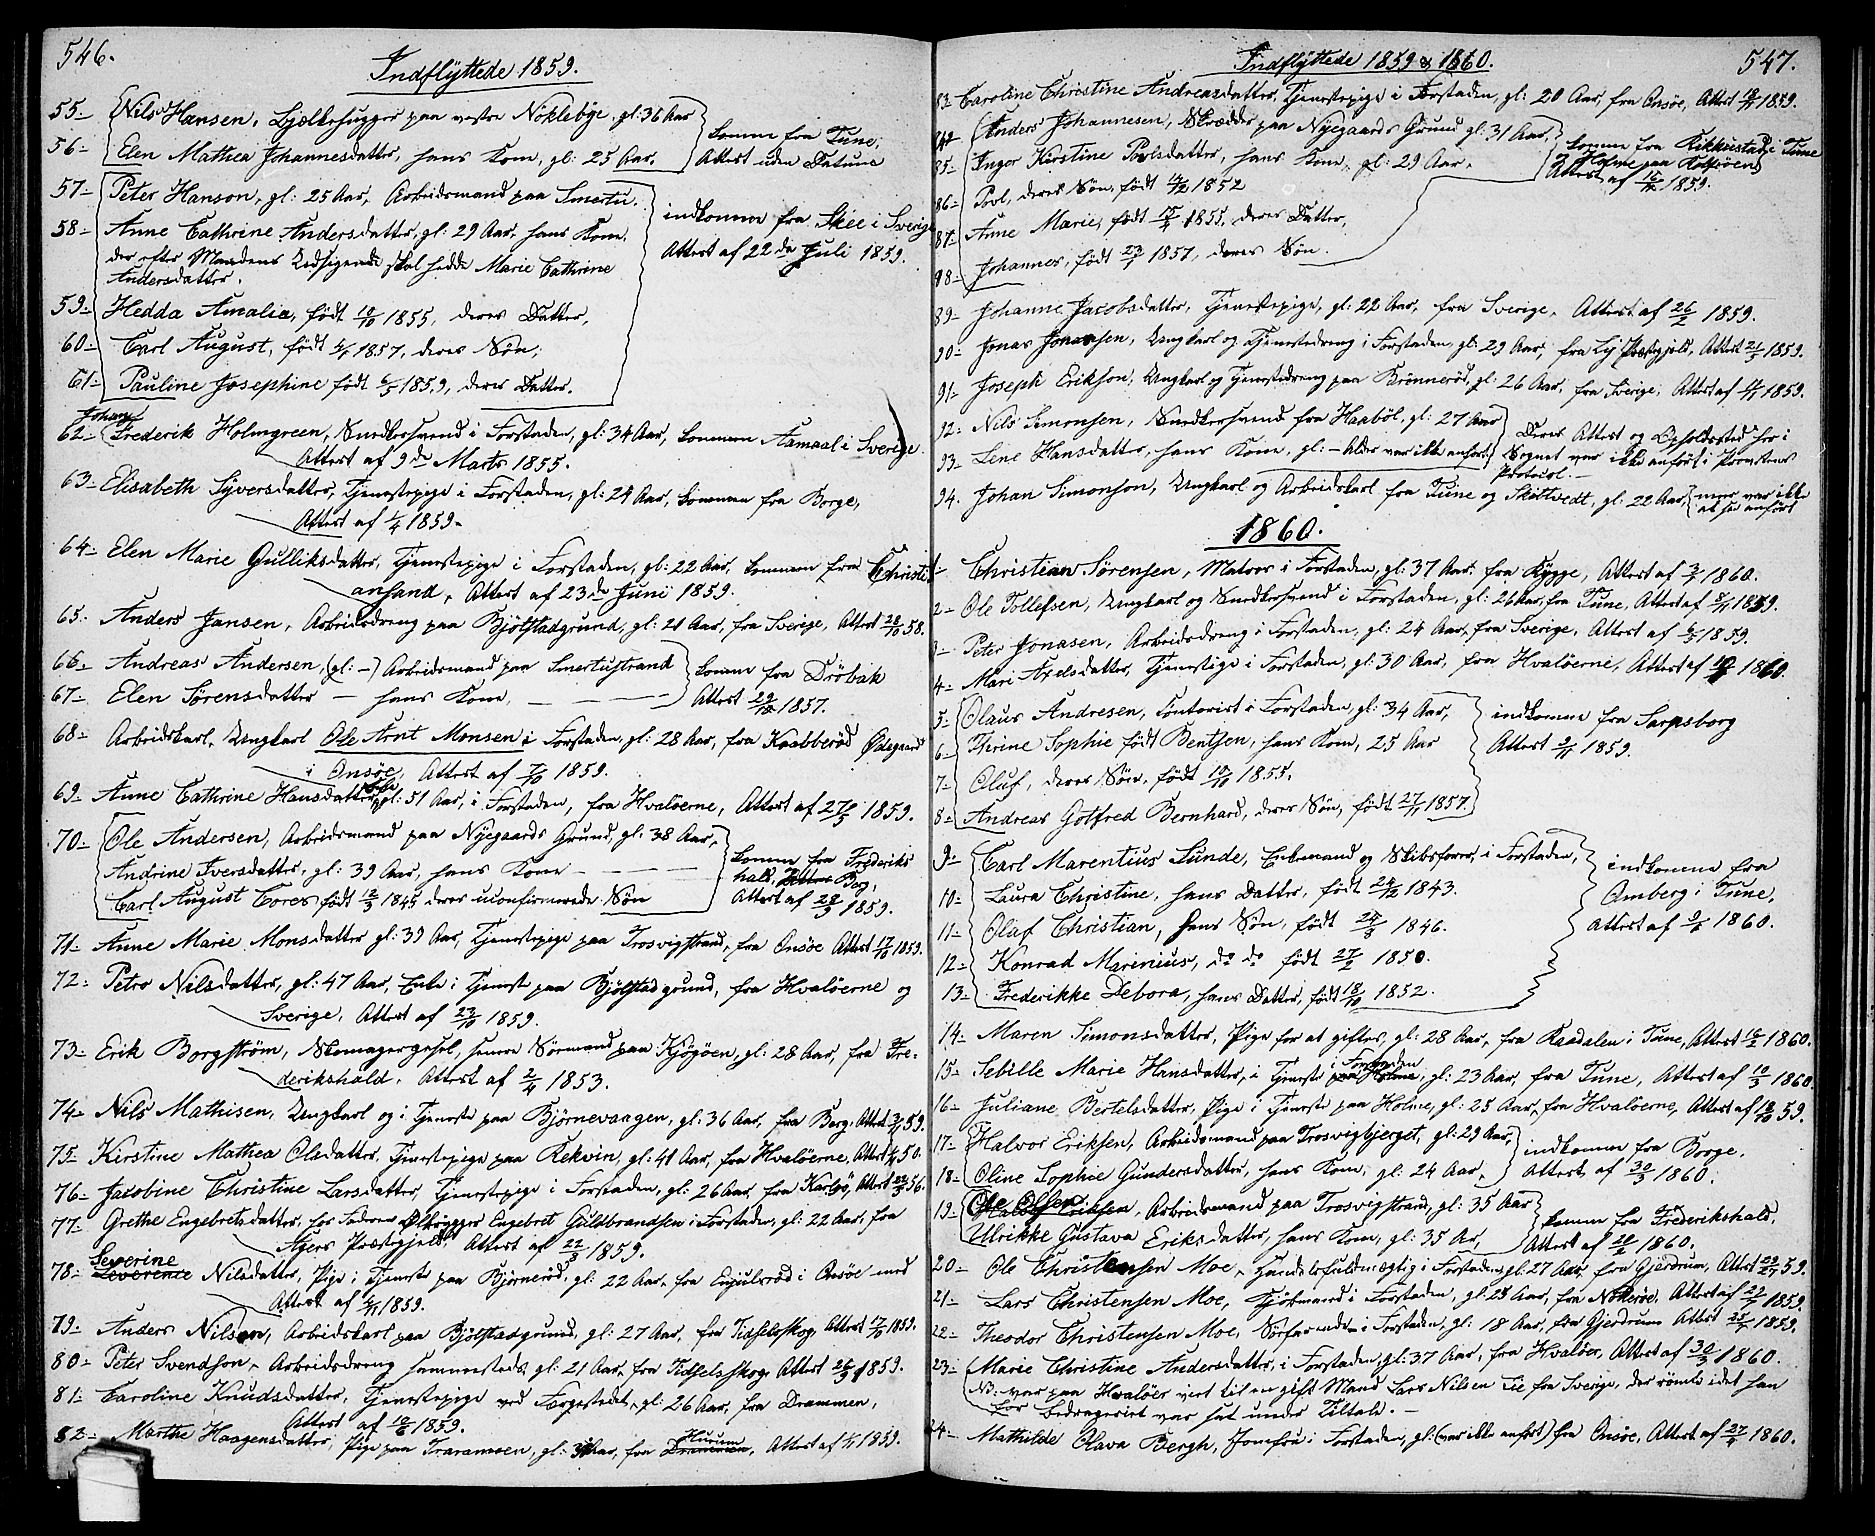 546.
Indflyttede 1859.
55- Nils Hansen, Bjælkehugger paa vestre Nöklebye, gl: 36 Aar
56- Elen Mathea Johannesdatter, hans Kone, gl: 25 Aar,
komne fra Tune,
Attest uden Datum
57- Peter Hanson, gl: 25 Aar, Arbeidsmand paa Smertu.
58- Anne Cathrine Andersdatter, gl: 29 Aar, hans Kone,
der efter Mandens Udsigende skal hedde Marie Cathrine
Andersdatter.
indkomne fra Skee i Sverige
Attest af 22de Juli 1859.
59- Hedda Amalia, födt 10/10 1855, deres Datter,
60- Carl August, födt 1857, deres Sön,
61- Pauline Josephine födt 6/5 1859, deres Datter.
Johan
62- Frederik Holmgreen, Snedkersvend i Forstaden, gl: 34 Aar, kommen Aamaal i Sverige
Attest af 9de Marts 1855.
63- Elisabeth Syversdatter, Tjenestepige i Forstaden, gl: 24 Aar, kommen fra Borge,
Attest af 1/4 1859-
64- Elen Marie Gulliksdatter, Tjenestepige i Forstaden, gl: 22 Aar, kommen fra Christi-
ansand, Attest af 23de Juni 1859.
65- Anders Jansen, Arbeidsdreng paa Bjölstadgrund, gl: 21 Aar, fra Sverige, Attest 28/10 58.
66- Andreas Andersen, (gl: -) Arbeidsmand paa Smertustrand
67- Elen Sörensdatter - hans Kone,
komne fra Dröbak
Attest 29/10 1857.
68- Arbeidskarl, Ungkarl Ole Arnt Monsen i Forstaden, gl: 28 Aar, fra Knabberöd Ödegaard
i Onsöe, Attest af 7/10 1859.
69- Anne Cathrine Hansdatter, gl: 51 Aar, i Forstaden, fra Hvalöerne, Attest af 27/5 1859.
70- Ole Andersen, Arbeidsmand paa Nyegaards Grund, gl: 38 Aar,
Andrine Iversdatter, gl: 39 Aar, hans Kone
Carl August Cores födt 12/3 1845 deres uconfirmerede Sön
komne fra Frederiks
hald, Berg,
Attest af 28/9 1859.
71- Anne Marie Monsdatter gl: 39 Aar, Tjenestepige paa Trosvigstrand, fra Onsöe Attest 17/10 1859.
72- Petro Nilsdatter, gl: 47 Aar, Enke i Tjeneste paa Bjölstadgrund, fra Hvalöerne og
Sverige, Attest af 23/10 1859.
73- Erik Borgström, Skomagergesel, senere Sörmand paa Kjögöen, gl: 28 Aar, fra Fre-
derikshald, Attest af 2/4 1853.
74- Nils Mathisen, Ungkarl og i Tjeneste paa Björnevaagen, gl: 36 Aar, fra Berg, Attest 3/11 59.
75- Kirstine Mathea Olsdatter, Tjenestepige paa Rekvin, gl: 41 Aar, fra Hvalöerne, Attest 50.
76- Jacobine Christine Larsdatter, Tjenestepige i Forstaden, gl: 26 Aar, fra Karlsö, Attest 56.
77- Grethe Engebretsdatter, hos Faderen Ölbrygger Engebret Guldbrandsen i Forstaden, gl: 22 Aar, fra
Agers Præstegjeld, Attest af 22/8 1859.
Severine
78- Nilsdatter, Pige i Tjeneste paa Björneröd, gl: 22 Aar, fra Engelsröd i Onsöe med
Attest af 6/11 1859.
79- Anders Nilson, Arbeidskarl paa Bjölstadgrund, gl: 27 Aar, fra Tidselsskog, Attest 17/10 1859.
80- Peter Svendson, Arbeidsdreng sammesteds, gl: 21 Aar, fra Tidselsskog Attest 1859.
81- Caroline Knudsdatter, Tjenestepige ved Færgestedet, gl: 26 Aar, fra Drammen,
Attest af 10/6 1859.
82- Marthe Haagensdatter, Pige paa Traramoen, gl: Aar, fra Hurum, Attest af 1859.
547.
Indflyttede 1859 & 1860.
83 Caroline Christine Andreasdatter, Tjenestepige i Forstaden, gl: 20 Aar, fra Onsöe, Attest 1859.
84- Anders Johannesen, Skrædder paa Nyegaards Grund gl: 31 Aar,
85- Inger Kirstine Poulsdatter, hans Kone, gl: 29 Aar,
86- Povl, deres Sön, födt 1852
87- Anne Marie, födt 1855, deres Datter,
88- Johannes, födt 23/1 1857, deres Sön.
komne fra Kikkustad i Tune
Attest af 1859.
89- Johanne Jacobsdatter, Tjenestepige, gl: 22 Aar, fra Sverige, Attest af 26/2 1859.
90- Jonas Jonassen, Ungkarl og Tjenestedreng i Forstaden, gl: 29 Aar, fra Ly Præstgjeld, Attest 21/5 1859.
91- Joseph Erikson, Ungkarl og Tjenestedreng paa Brönneröd, gl: 26 Aar, fra Sverige, Attest af 1859.
92- Nils Simonsen, Snedkersvend fra Haaböl, gl: 27 Aar
93- Lene Hansdatter, hans Kone, gl: - Alder var ikke anfört
Deres Attest og Opholdssted her i
Sognet var ikke anfört i Provstens
Protocol.-
94. Johan Simonson, Ungkarl og Arbeidskarl fra Tune og Skiltvedt, gl: 22 Aar, mere var ikke
at see anfört
1860.
1- Christian Sörensen, Matros i Forstaden, gl: 37 Aar, fra Rygge, Attest af 1860.
2- Ole Tollefsen, Ungkarl og Snedkersvend i Forstaden, gl: 26 Aar, fra Tune, Attest af 1859.
3- Peter Jonasen, Arbeidsdreng i Forstaden, gl: 24 Aar, fra Sverige, Attest af 1859.
4- Mari Axelsdatter, Tjenestige i Forstaden, gl: 30 Aar, fra Hvalöerne, Attest af 1860.
5- Olaus Andresen, Contorist i Forstaden, gl: 34 Aar,
6- Thrine Sophie födt Bentsen, hans Kone, 25 Aar
7- Oluf, deres Sön, födt 10/10 1855.
8- Andreas Gotfred Bernhard, deres Sön, födt 27/11 1857.
indkomne fra Sarpsborg
Attest 9/11 1859.
9- Carl Marentius Lunde, Enkemand og Skibsförer, i Forstaden,
10- Laura Christine, hans Datter, födt 24/12 1843.
11- Olaf Christian, hans Sön, födt 1846.
12- Konrad Marinius, do do födt 27/2 1850.
13- Frederikke Debora, hans Datter, födt 18/10 1852.
indkomne fra
Omberg i Tune,
Attest af 1860.
14- Maren Simonsdatter, Pige for at giftes, gl: 28 Aar, fra Raadalen i Tune, Attest 16/2 1860.
15- Sebille Marie Hansdatter, i Tjeneste i Forstaden, gl: 23 Aar, fra Tune, Attest af 10/3 1860
16- Juliane Bertelsdatter, Pige i Tjeneste paa Holme, gl: 25 Aar, fra Hvalöerne, Attest af 12/10 59.
17- Halvor Eriksen, Arbeidsmand paa Trosvigbjerget, gl: 29 Aar,
18- Oline Sophie Gundersdatter, hans Kone, gl: 24 Aar,
indkomne fra Borge,
Attest af 30/3 1860.
19- Ole Olsen, Arbeidsmand paa Trosvigstrand, gl: 35 Aar
Ulrikke Gustava Eriksdatter, hans Kone, gl: 35 Aar,
komne fra Frederikshald,
Attest af 20/2 1860.
20- Ole Christensen Moe, Handelsfuldmægtig i Forstaden gl: 27 Aar, fra Gjerdrum, Attest 59.
21- Lars Christensen Moe, Kjöbmand i Forstaden, gl: 25 Aar, fra, Attest af 1859.
22- Theodor Christensen Moe, Sörfarende i Forstaden, gl: 18 Aar, fra Gjerdrum Attest 1859.
23- Marie Christine Andersdatter, i Forstaden, gl: 37 Aar, fra Hvalöer, Attest af 30/3 1860.
NB. var paa Hvalöer viet til en gift Mand Lars Nilsen Lie fra Sverige, der römte idet han
for Bedrageriet var sat under Tiltale.-
24- Mathilde Olava Bergh, Jomfru i Forstaden, gl: (var ikke anfört) fra Onsöe, Attest af 27/4 1860.